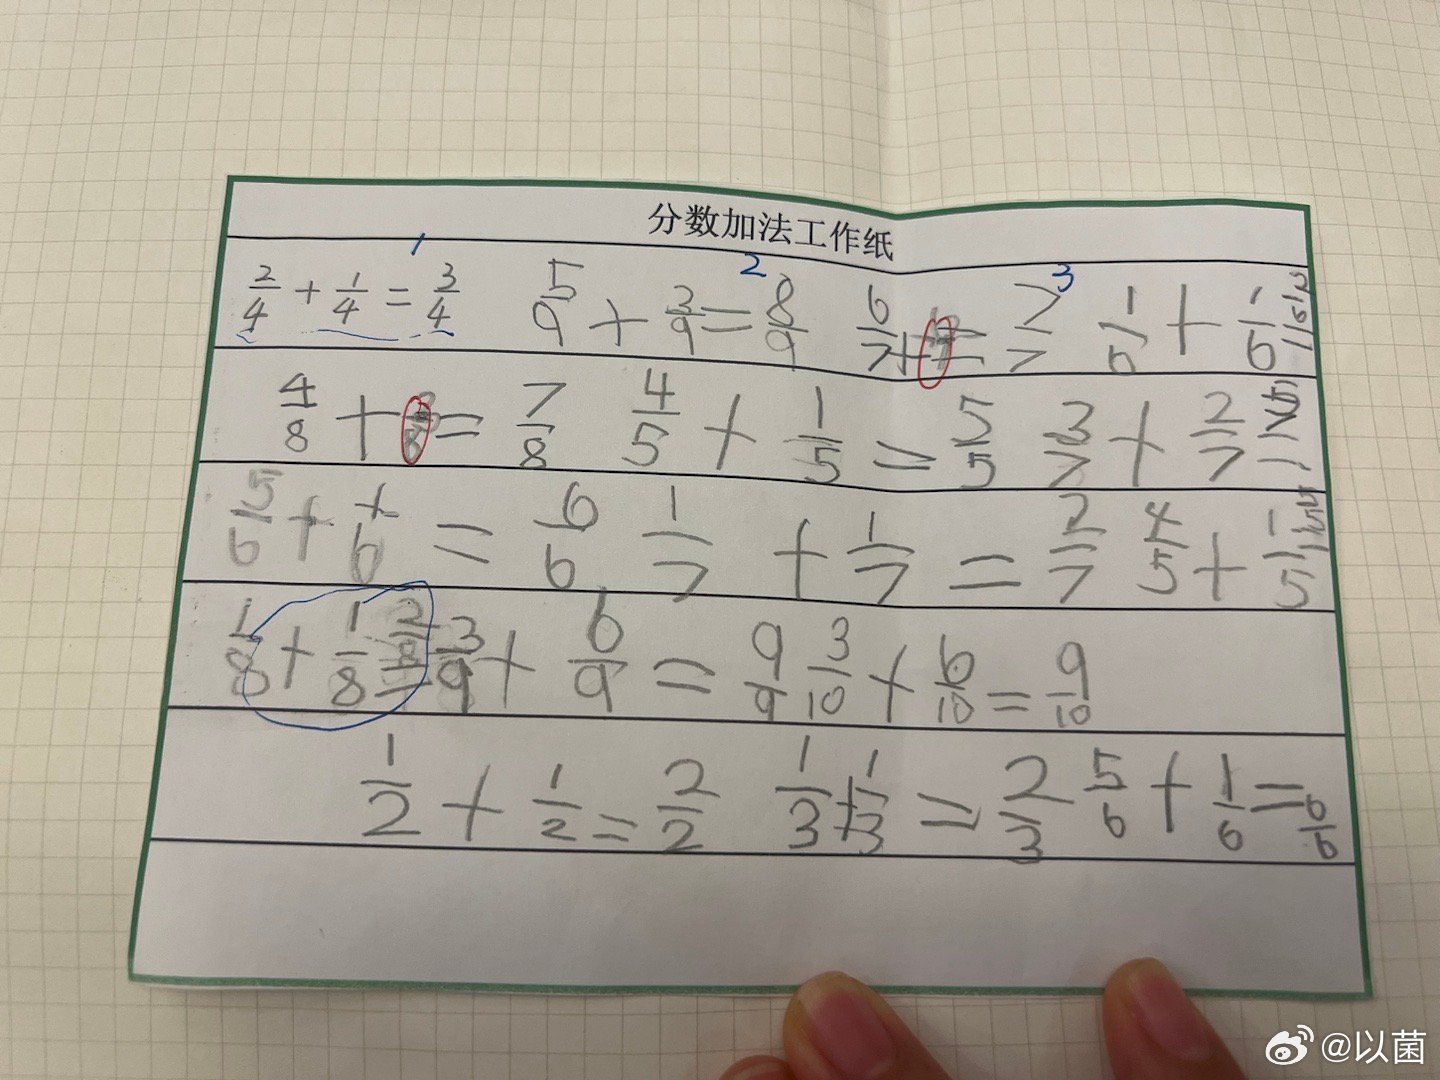 分数加法工作纸
1 2 3
2/4 + 1/4 = 3/4 5/9 + 3/9 = 8/9 6/7 + = 7/7 1/6 + 1/6 = 2/6
4/8 + /8 = 7/8 4/5 + 1/5 = 5/5 3/7 + 2/7 = 5/7
5/6 + 1/6 = 6/6 1/7 + 1/7 = 2/7 4/5 + 1/5 = 5/5
1/8 + 1/8 = 2/8 3/9 + 6/9 = 9/9 3/10 + 6/10 = 9/10
1/2 + 1/2 = 2/2 1/3 + 1/3 = 2/3 5/6 + 1/6 = 6/6
@以菌